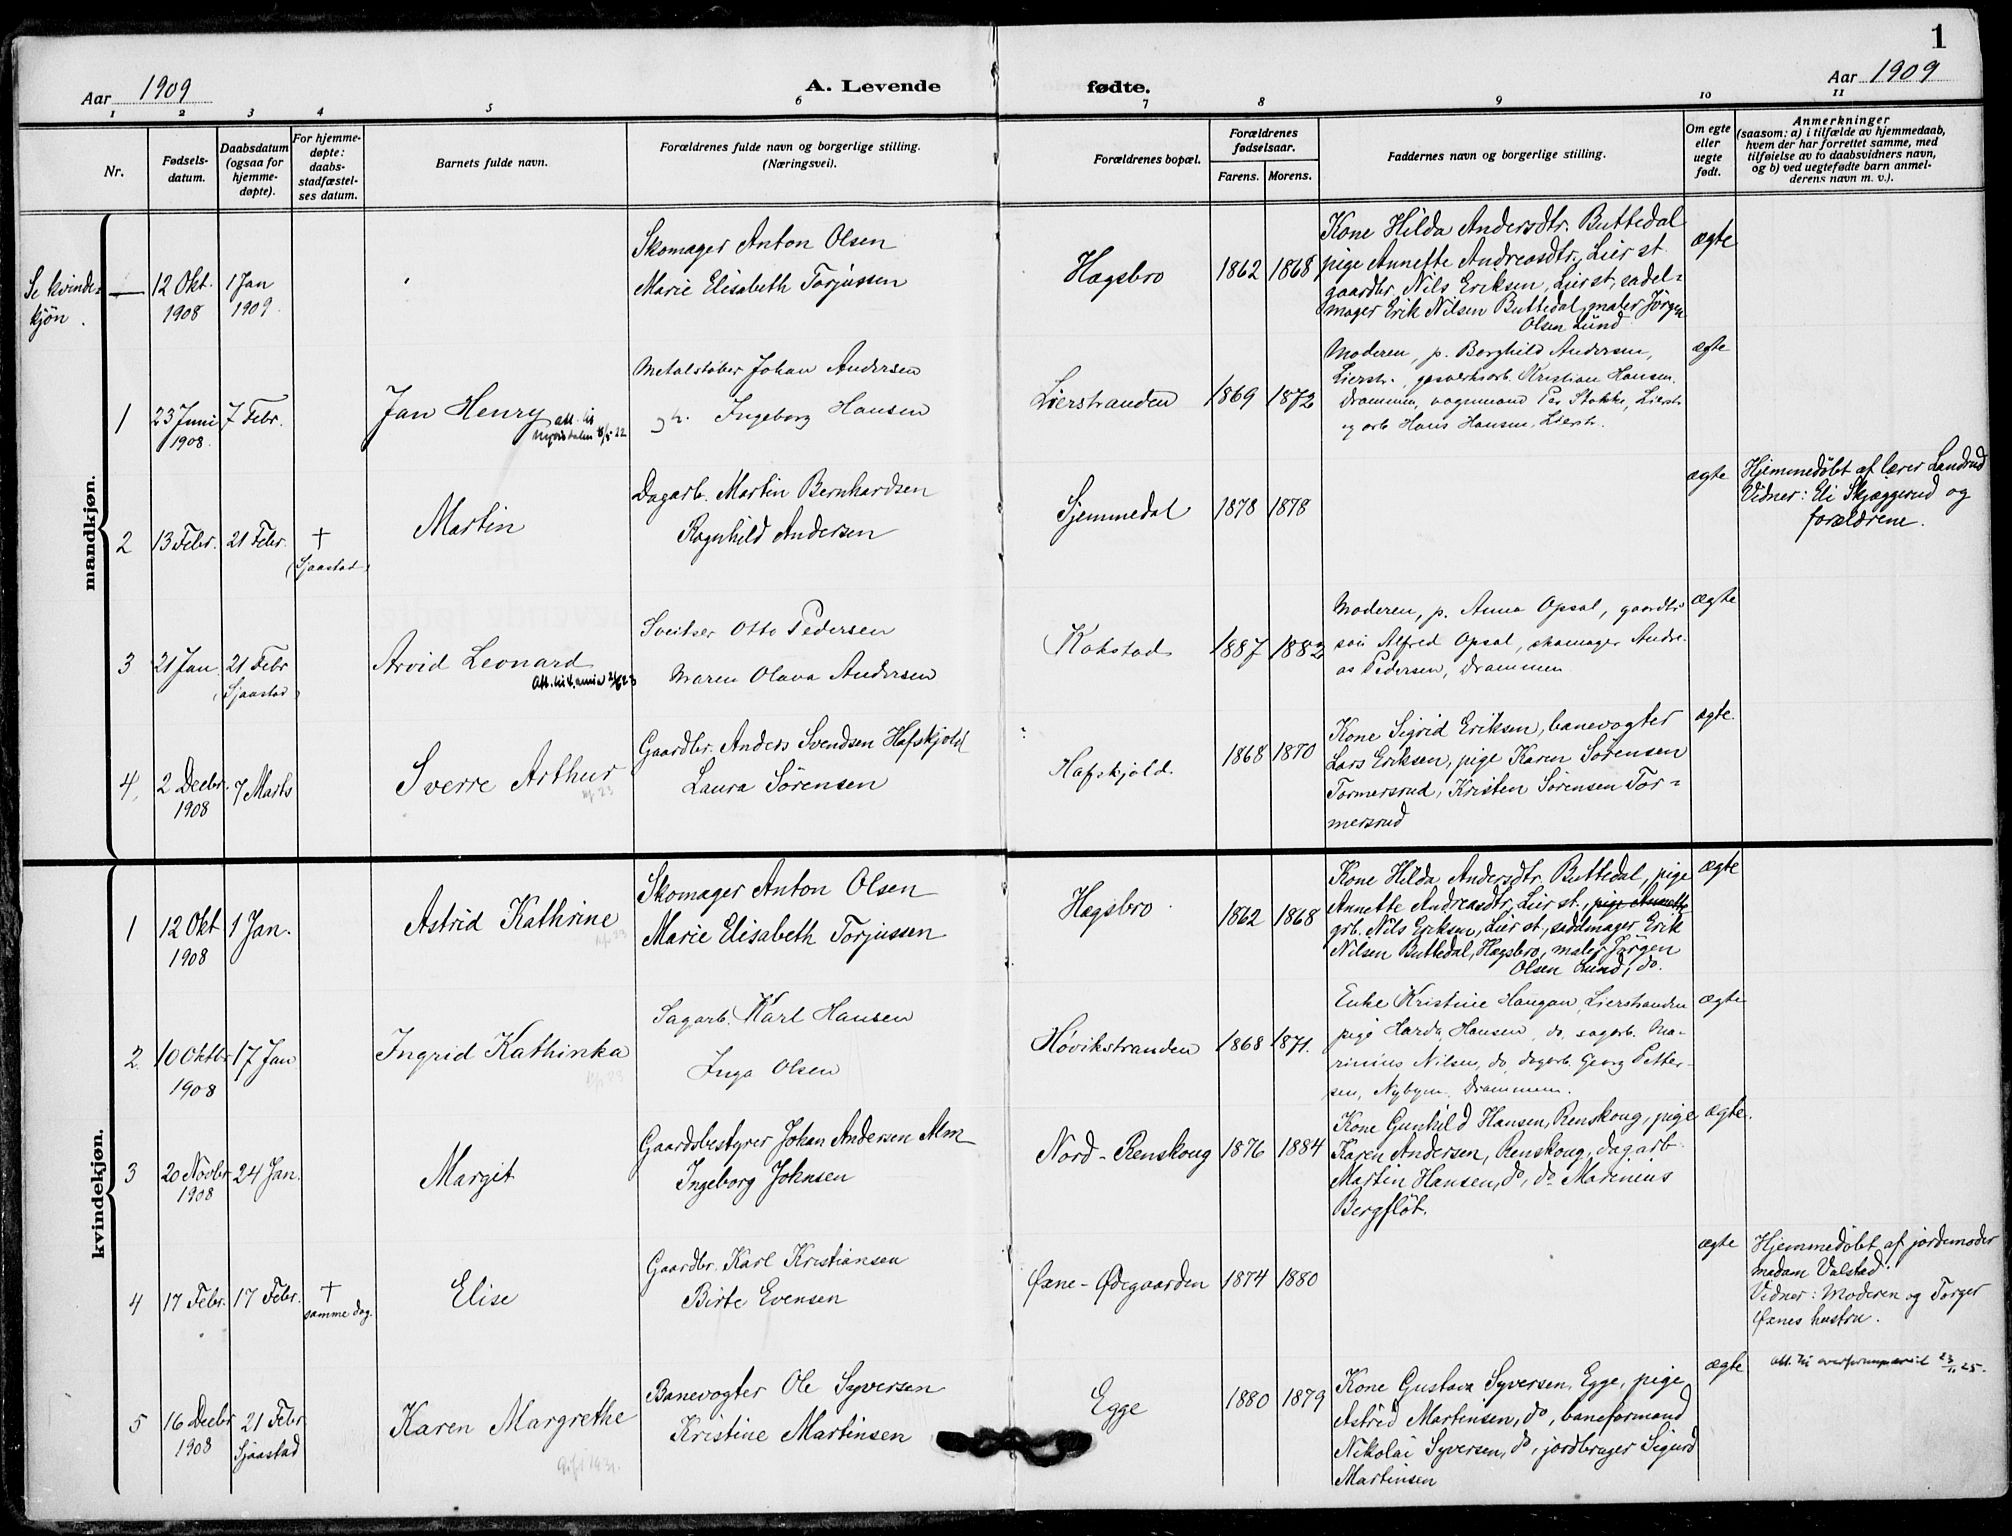 1
Aar 1909
A. Levende fødte.
Aar 1909
1 2 3 4 5 6 7 8 9 10 11
Nr.
Fødsels-
datum.
Daabsdatum
(ogsaa for
hjemme-
døpte).
For hjemme-
døpte:
daabs-
stadfæstel-
ses datum.
Barnets fulde navn.
Forældrenes fulde navn og borgerlige stilling.
(Næringsvei).
Forældrenes bopæl.
Forældrenes
fødselsaar.
Farens. Morens.
Faddernes navn og borgerlige stilling.
Om egte
eller
uegte
født.
Anmerkninger
(saasom: a) i tilfælde av hjemmedaab,
hvem der har forrettet samme, med
tilføielse av to daabsvidners navn,
og b) ved uegtefødte barn anmel-
derens navn m. v.).
mandkjøn.
Se kvinde-
kjøn.
— 12 Okt.
1908
1 Jan
1909
Skomager Anton Olsen
Marie Elisabeth Torjussen
Hagsbro
1862 1868
Kone Hilda Andersdtr. Buttedal
pige Annette Andreasdtr., Lier st.
gaardbr. Nils Eriksen, Lier st, sadel-
mager Erik Nilsen Buttedal, maler Jørgen
Olsen Lund
ægte
1
23 Juni
1908.
7 Febr.
Jan Henry
Metalstøber Johan Andersen
Ingeborg Hansen
Lierstranden
1869 1872
Moderen, p. Borghild Andersen,
Lierstr., gasverksarb. Kristian Hansen
Drammen, vognmand Per Stokke, Lierstr
og arb Hans Hansen, Lierstr.
ægte
2
13 Febr.
21 Febr.
+
(Sjaastad)
Martin
Dagarb. Martin Bernhardsen
Ragnhild Andersen
Gjemmedal
1878 1878
ægte
Hjemmedøbt af lærer Landrud
Vidner: Eli Skjæggerud og
forældrene.
3
21 Jan.
21 Febr
(Sjaastad)
Arvid Leonard
Sveitser Otto Pedersen
Maren Olava Andersen
Kokstad
1887 1882
Moderen, p. Anna Opsal, gaardbr
søn Alfred Opsal, skomager Andre-
as Pedersen, Drammen
ægte
4.
2 Decbr.
1908
7 Marts
Sverre Arthur
Gaardbr. Anders Svendsen Hafskjold
Laura Sørensen
Hafskjold.
1868 1870
Kone Sigrid Eriksen, banevogter
Lars Eriksen, pige Karen Sørensen
Tormersrud, Kristen Sørensen Tor-
mersrud
ægte.
kvindekjøn.
1
12 Okt
1908
1 Jan.
Astrid Kathrine
Skomager Anton Olsen
Marie Elisabeth Torjussen
Hagsbro
1862 1868
Kone Hilda Andersdtr. Buttedal, pige
Annette Andreasdtr, Lier st., pige Annette
grb. Nils Eriksen, Lier st, sadelmager Erik
Nilsen Buttedal, Hagsbro, maler Jørgen
Olsen Lund, do.
ægte
2.
10 Oktbr
1908
17 Jan
Ingrid Kathinka
Sagarb. Karl Hansen
Inga Olsen
Høvikstranden
1868 1871.
Enke Kristine Haugan, Lierstranden
pige Harda Hansen, do, sagarb. Ma-
rinius Nilsen, do, dagarb. Georg Petter-
sen, Nybyen, Drammen.
ægte
3
20 Novbr
1908
24 Jan.
Margit
Gaardsbestyrer Johan Andersen Alm
Ingeborg Johnsen
Nord-Renskoug
1876 1884
Kone Gunhild Hansen, Renskoug, pige
Karen Andersen, Renskoug, dagarb.
Martin Hansen, do, do Marinius
Bergfløt.
ægte.
4
17 Febr.
17 Febr.
+
samme dag.
Elise
Gaardbr. Karl Kristiansen
Birte Evensen
Øxne-Ødegaarden
1874 1880
ægte
Hjemmedøbt af jordemoder
madam Valstad
Vidner: Moderen og Torger
Øxnes hustru.
5
16 Decbr
1908
21 Febr
Sjaastad
Karen Margrethe
Gift 1931.
Banevogter Ole Syversen
Kristine Martinsen
Egge
1880 1879
Kone Gustava Syversen, Egge, pige
Astrid Martinsen, do, baneformand
Nikolai Syversen, do, jordbruger Sigurd
Martinsen
ægte